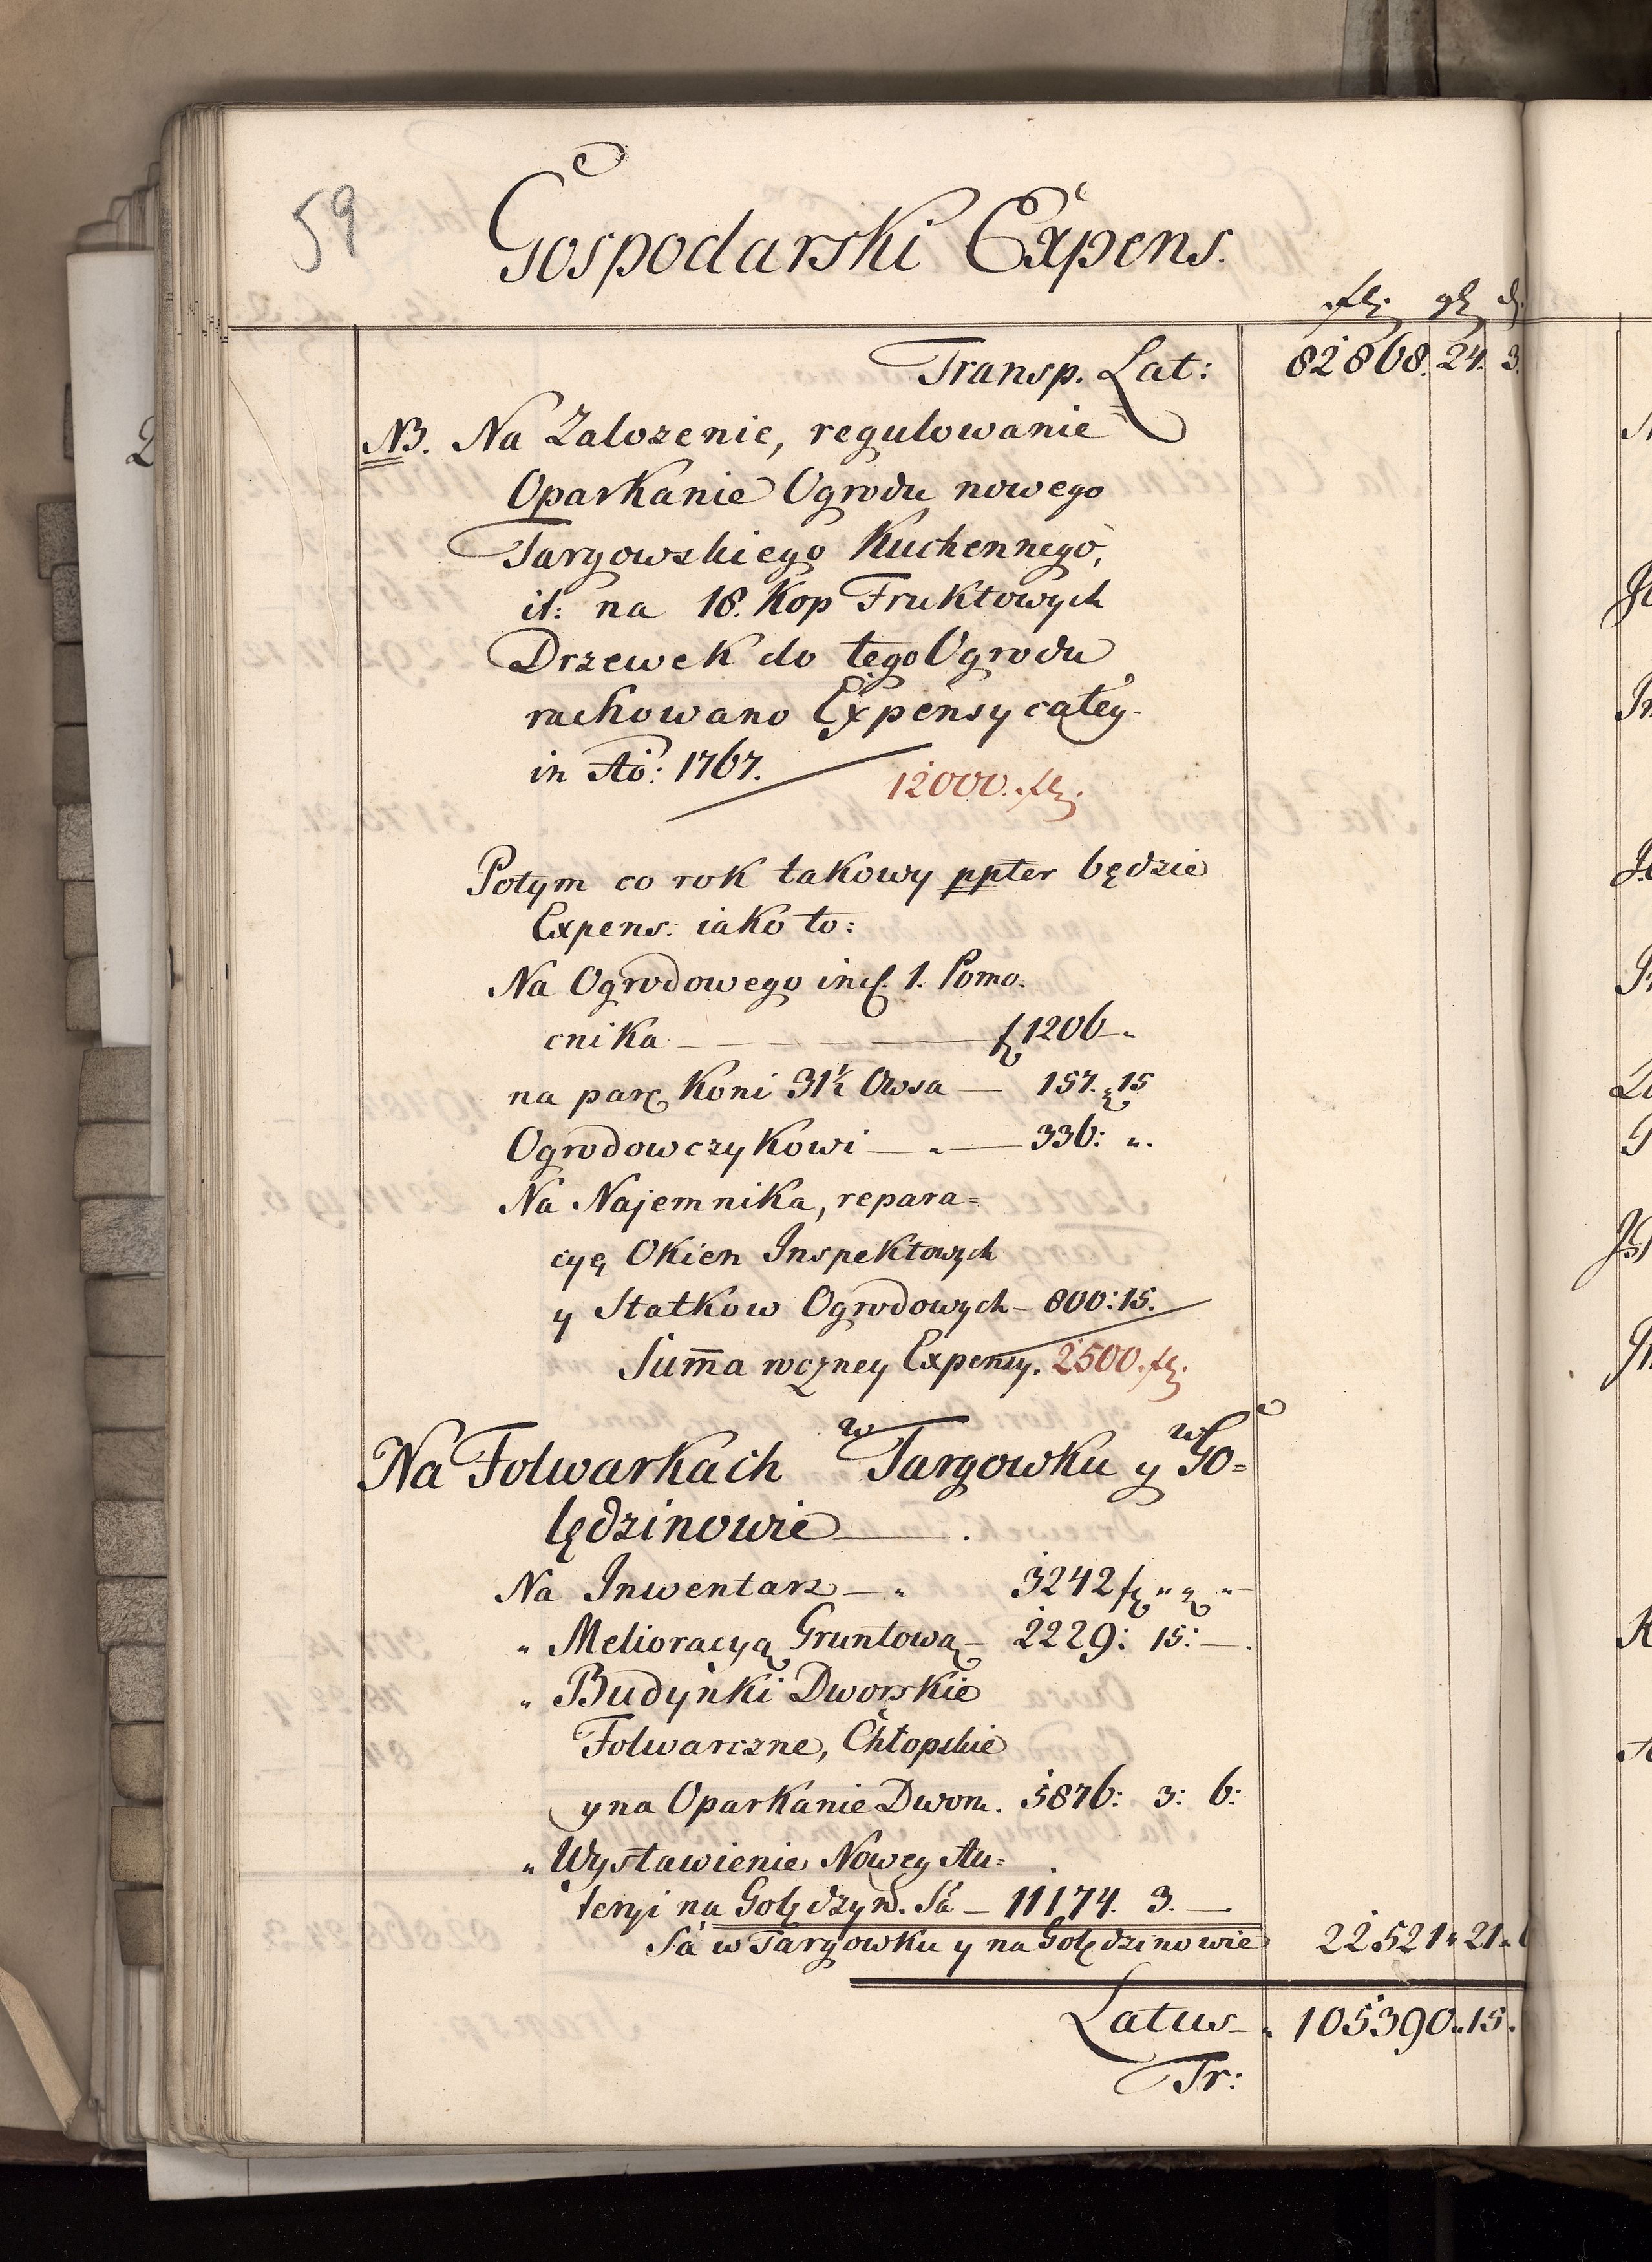 59
Gospodarski Expens.
fl: gl d:
Transp. Lat: 82868. 24. 3.
NB. Na Zalozenie, regulowanie
Oparkanie Ogrodu nowego
Targowskiego Kuchennego,
it: na 18. Kop Fruktowych
Drzewek do tego Ogrodu
rachowano Expensy całey
in Ao: 1767. 12000. fl.
Potym co rok takowy ppter będzie
Expens: iako to:
Na Ogrodowego incl. 1. Pomo.
cnika — — — — — fl 1206 -"
na parę Koni 31½ Owsa — 157. 15
Ogrodowczykowi — " — 336: ".
Na Najemnika, repara=
cyę Okien Inspektowych
y Statkow Ogrodowych — 800: 15.
Sum̄a rocżney Expensy. 2500. fl.
Na Folwarkach w Targowku y w Go=
lędzinowie — .
Na Inwentarz — " 3242 fl " " -
" Melioracyą Gruntową — 2229: 15: — .
" Budynki Dworskie
Folwarczne, Chłopskie
y na Oparkanie Dwom. 5876: 3: 6:
" Wystawienie Nowey Au=
teryi na Golędzyn. Sa — 11174. 3. —
Sa w Targowku y na Golędzinowie 22521 " 21 "
Latus — . 105390 " 15.
Tr: